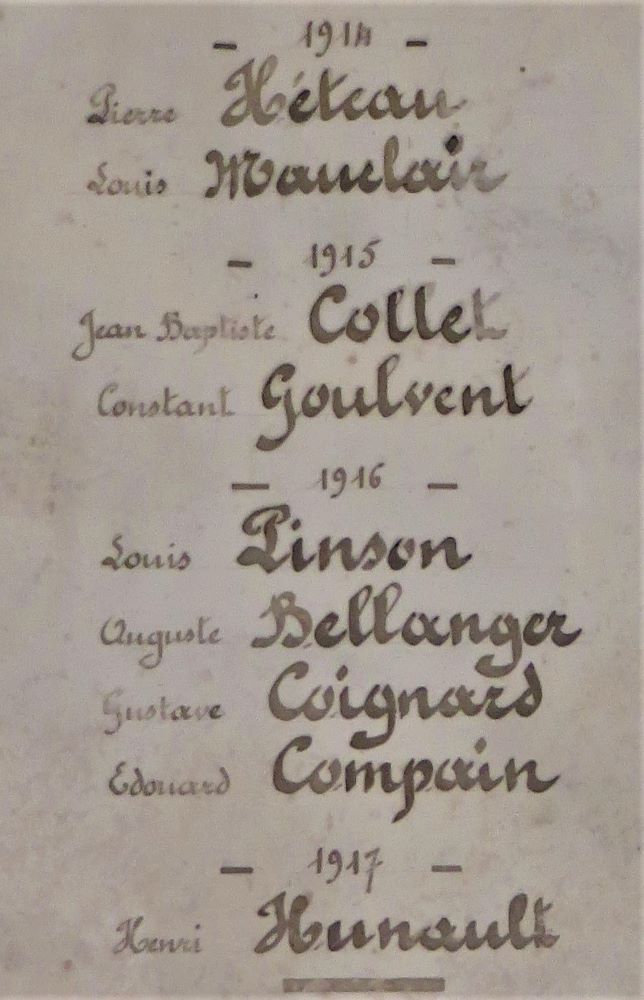 - 1914 -
Pierre Héteau
Louis Mauclair
- 1915 -
Jean Baptiste Collet
Constant Goulvent
- 1916 -
Louis Pinson
Auguste Bellanger
Gustave Coignard
Edouard Compain
- 1917 -
Henri Hunault